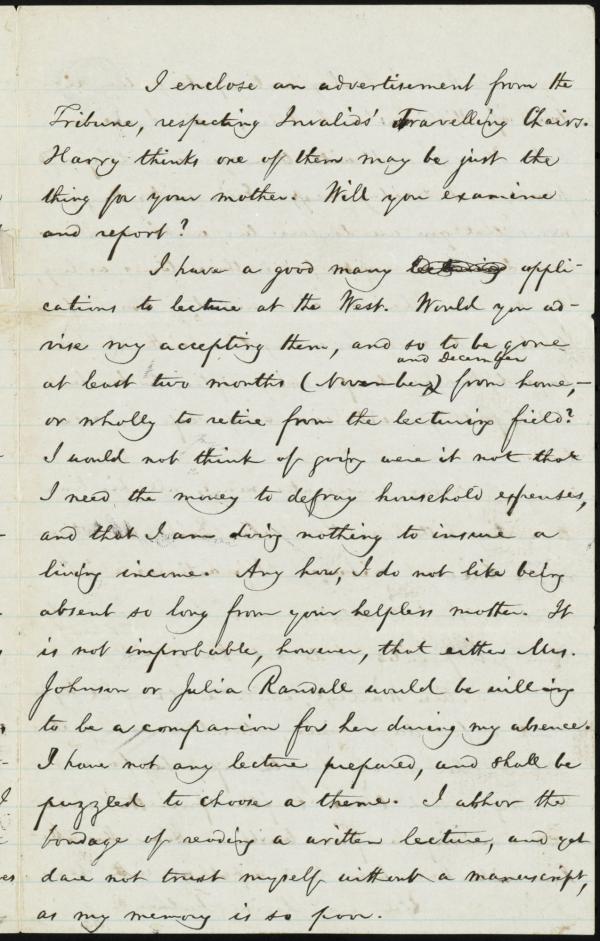 I enclose an advertisement from the
Tribune, respecting Invalids' Travelling Chairs.
Harry thinks one of them may be just the
thing for your mother. Will you examine
and report?
I have a good many appli-
cations to lecture at the West. Would you ad-
vise my accepting them, and so to be gone
and December
at least two months (November) from home,—
or wholly to retire from the lecturing field?
I would not think of going were it not that
I need the money to defray household expenses,
and that I am doing nothing to insure a
living income. Any how, I do not like being
absent so long from your helpless mother. It
is not improbable, however, that either Mrs.
Johnson or Julia Randall would be willing
to be a companion for her during my absence.
I have not any lecture prepared, and shall be
puzzled to choose a theme. I abhor the
bondage of reading a written lecture, and yet
dare not trust myself without a manuscript,
as my memory is so poor.